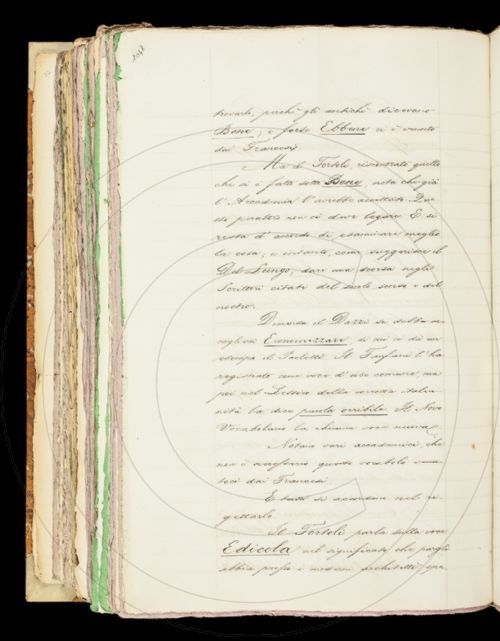 trovarla, perchè gli antichi dicevano
Bene; e forse Ebbene ci è venuto
dai Francesi.
Ma il Tortoli riscontrato quello
che si è fatto sotto Bene, nota che già
l'Accademia l'avrebbe accettato. Que
sto parlare non ci deve legare. E si
resta d'accordo di esaminare meglio
la cosa; e intanto, come suggerisce il
Del Lungo, dare una scorsa negli
Scrittori citati del secolo scorso e del
nostro.
Domanda il Dazzi se debba ac
cogliersi Economizzare, di cui ci dà un
esempio il Paoletti. Il Fanfani l'ha
registrato come voce di uso comune, ma
poi nel Lessico della corrotta italia
nità la dice parola orribile. Il Novo
Vocabolario la chiama voce nuova.
Notano vari accademici, che
non è necessario questo vocabolo venu
toci dai Francesi.
E tutti si accordano nel ri
gettarlo.
Il Tortoli parla sulla voce
Edicola nel significato che pargli
abbia presso i moderni architetti, spe